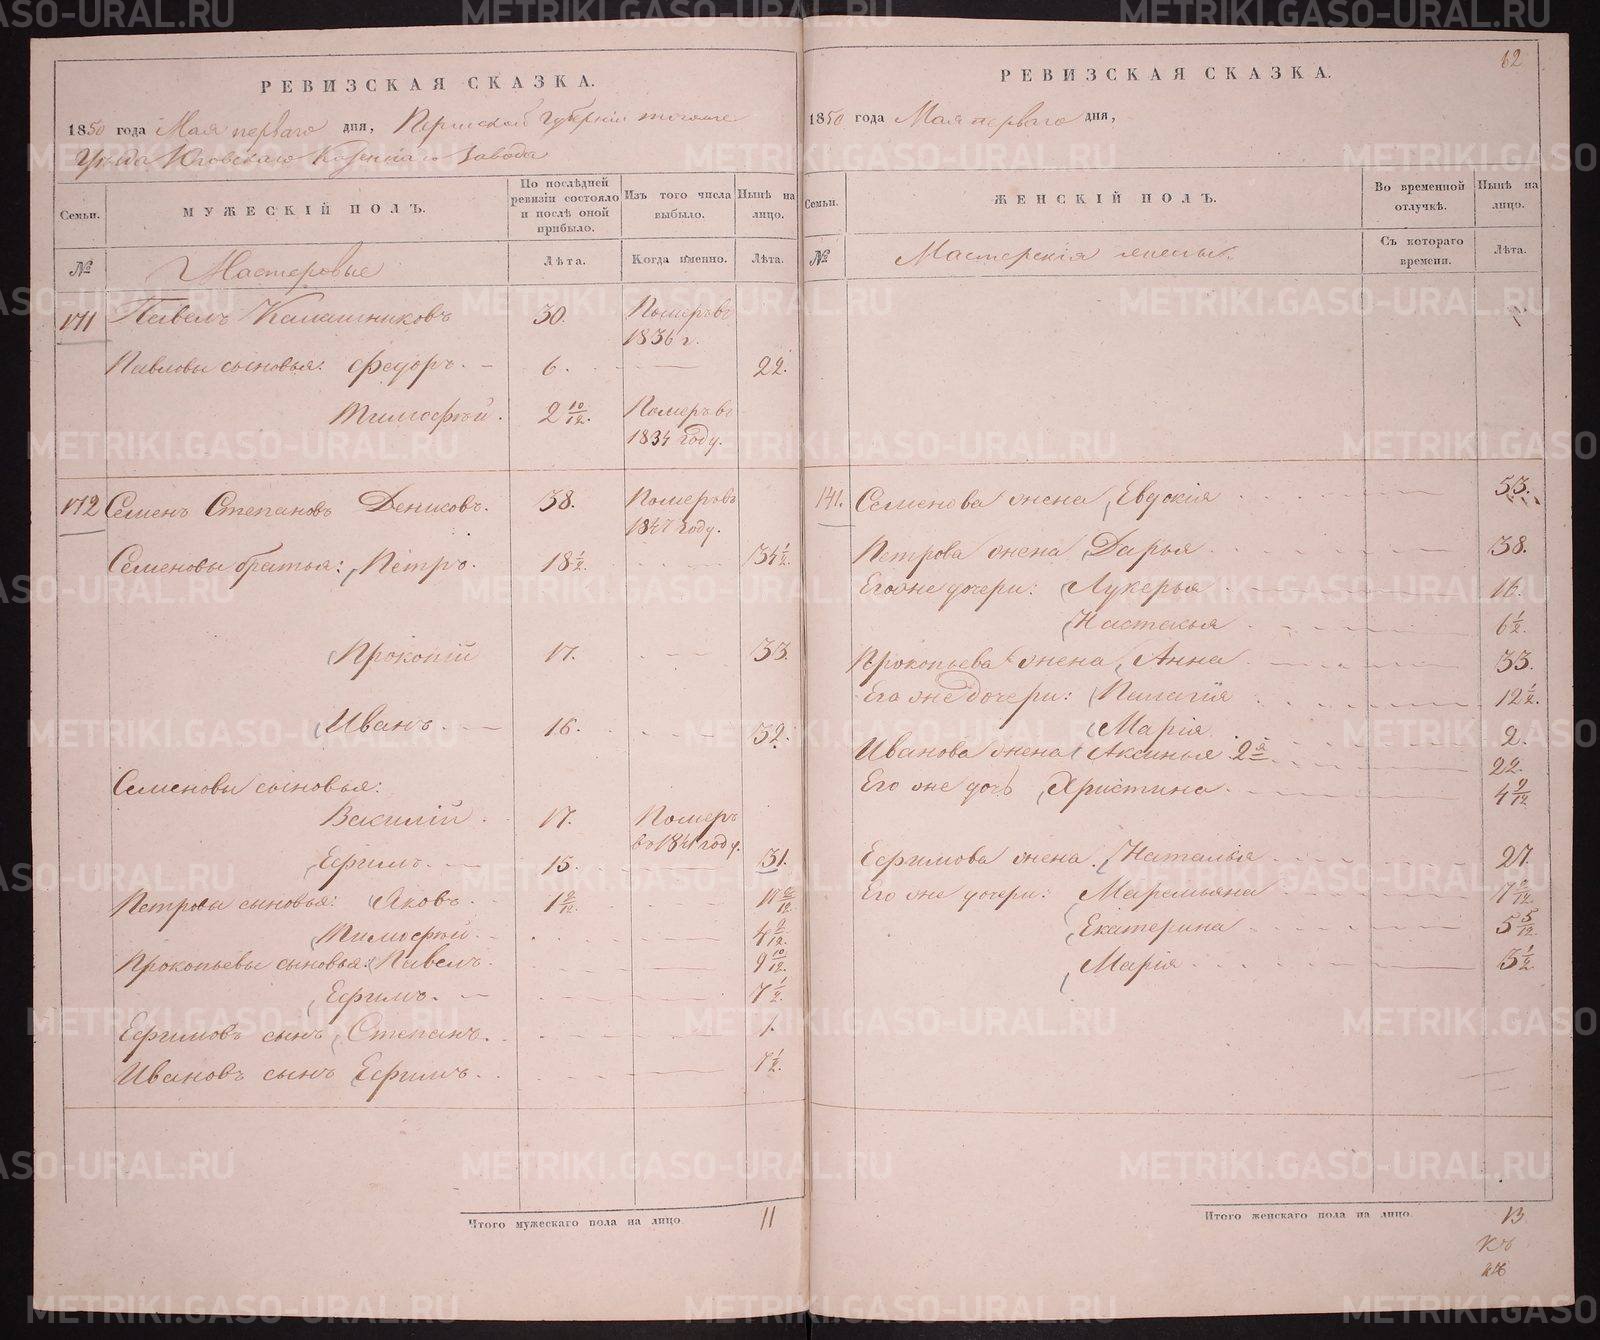 62
РЕВИЗСКАЯ СКАЗКА.
1850 года Мая перваго дня, Пермской Губернiи тогоже
Уѣзда Юговскаго Казеннаго Завода
Семьи.
МУЖЕСКІЙ ПОЛЪ.
По послѣдней ревизіи состояло и послѣ оной прибыло.
Изъ того числа выбыло.
Нынѣ на лицо.
№
Мастеровые
Лѣта.
Когда именно.
Лѣта.
171 Павелъ Калашниковъ 30. Померъ въ
1836 г.
Павловы сыновья: Федоръ. 6. 22.
Тимофѣй. 2 10/12. Померъ въ
1834 году.
172 Семенъ Степановъ Денисовъ. 38. Померъ въ
1847 году.
Семеновы братья: Петръ. 18 1/2. 34 1/2.
Прокопій 17. 33.
Иванъ. 16. 32.
Семеновы сыновья:
Василій 17. Померъ
въ 1841 году.
Ефимъ. 15. 31.
Петровы сыновья: Яковъ. 1 2/12. 17 2/12.
Тимофѣй. 4 2/12.
Прокопьевы сыновья: Павелъ. 9 10/12.
Ефимъ. 7 1/2.
Ефимовъ сынъ Степанъ. 1.
Ивановъ сынъ Ефимъ. 7 1/2.
Итого мужескаго пола на лицо 11
РЕВИЗСКАЯ СКАЗКА.
1850 года Мая перваго дня,
Семьи.
ЖЕНСКІЙ ПОЛЪ.
Во временной отлучкѣ.
Нынѣ на лицо.
№
Мастерскія жены.
Съ котораго времени.
Лѣта.
141. Семенова жена, Евдокія 53.
Петрова жена Дарья 38.
Его же дочери: Лукерья 16.
Настасья 6 1/2.
Прокопьева жена, Анна 33.
Его же дочери: Палагія 12 1/2.
Марія 2.
Иванова жена Аксинья 2я 22.
Его же дочь Христина 4 9/12
Ефимова жена. Наталья 27.
Его же дочери: Маремьяна 7 2/12.
Екатерина 5 5/12.
Марія 3 1/2
Итого женскаго пола на лицо. 13
METRIKI.GASO-URAL.RU